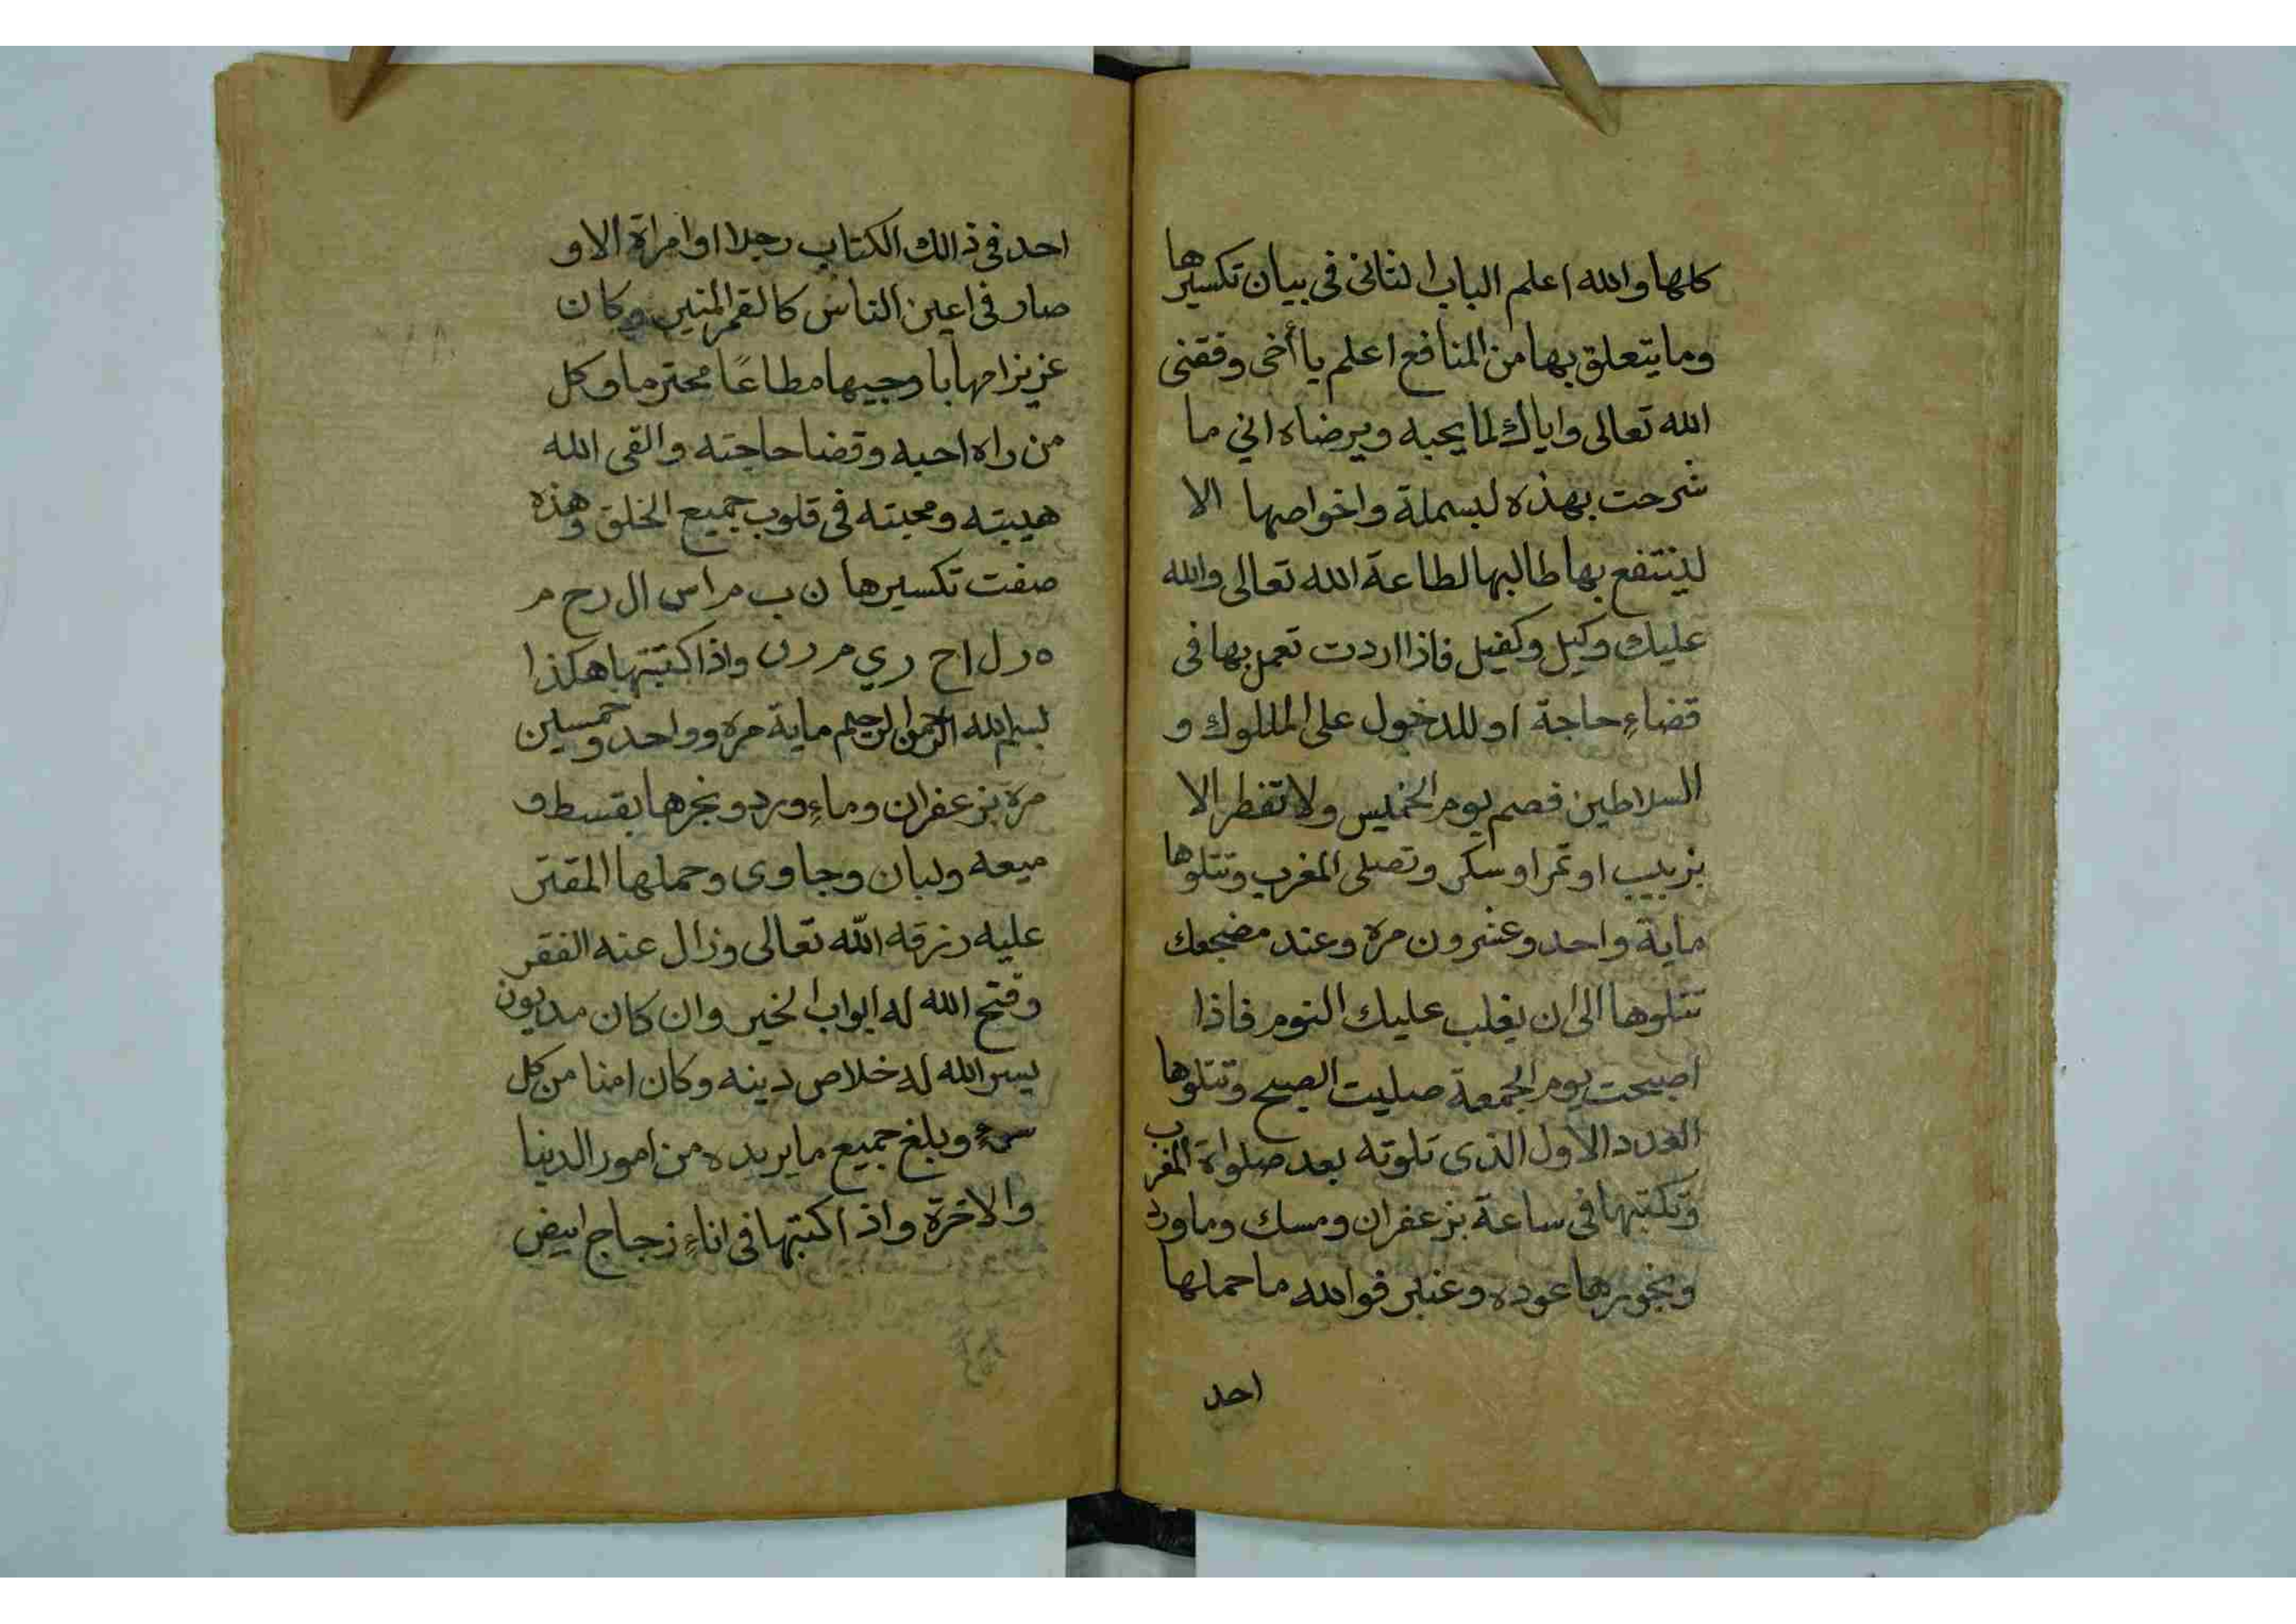 كلها والله اعلم الباب الثاني في بيان تكسيرها
وما يتعلق بها من المنافع اعلم يا أخى وفقنى
الله تعالى واياك لما يحبه ويرضاه اني ما
شرحت بهذه لبسملة واخواصها الا
لينتفع بها طالبها لطاعة الله تعالى والله
عليك وكيل وكفيل فاذا اردت تعمل بها فى
قضاءِ حاجة او للدخول على المللوك و
السلاطين فصم يوم الخميس ولا تفطر الا
بزبيب او تمر او سكر وتصلى المغرب وتتلوها
ماية واحد وعشرون مرة وعند مضجعك
تتلوها الى ان يغلب عليك النوم فاذا
اصبحت يوم الجمعة صليت الصبح وتتلوها
العدد الاول الذى تلوته بعد صلواة المغرب
وتكتبها فى ساعة بزعفران ومسك وماورد
وبخورها عوده وعنبر فوالله ما حملها
احد
احد فى ذالك الكتاب رجلا او امراة الا و
صار فى اعين الناس كالقمر المنير وكان
عزيزا مهابا وجيها مطاعًا محترما وكل
من راه احبه وقضا حاجته والقى الله
هيبته ومحبته فى قلوب جميع الخلق وهذه
صفت تكسيرها ن ب م ا س ال رح م
ه ر ل اح ري م ر ن واذا كتبتها هكذا
بسم الله الرحمن الرحيم ماية مرة وواحد وخمسين
مرة بزعفران وماءِ ورد وبخرها بقسط و
ميعه ولبان وجاوى وحملها المقتر
عليه رزقه الله تعالى وزال عنه الفقر
وفتح الله له ابواب الخير وان كان مديون
يسر الله له خلاص دينه وكان امنا من كل
سوءٍ وبلغ جميع ما يريده من امور الدنيا
والاخرة واذا كتبتها فى اناءِ زجاج ابيض